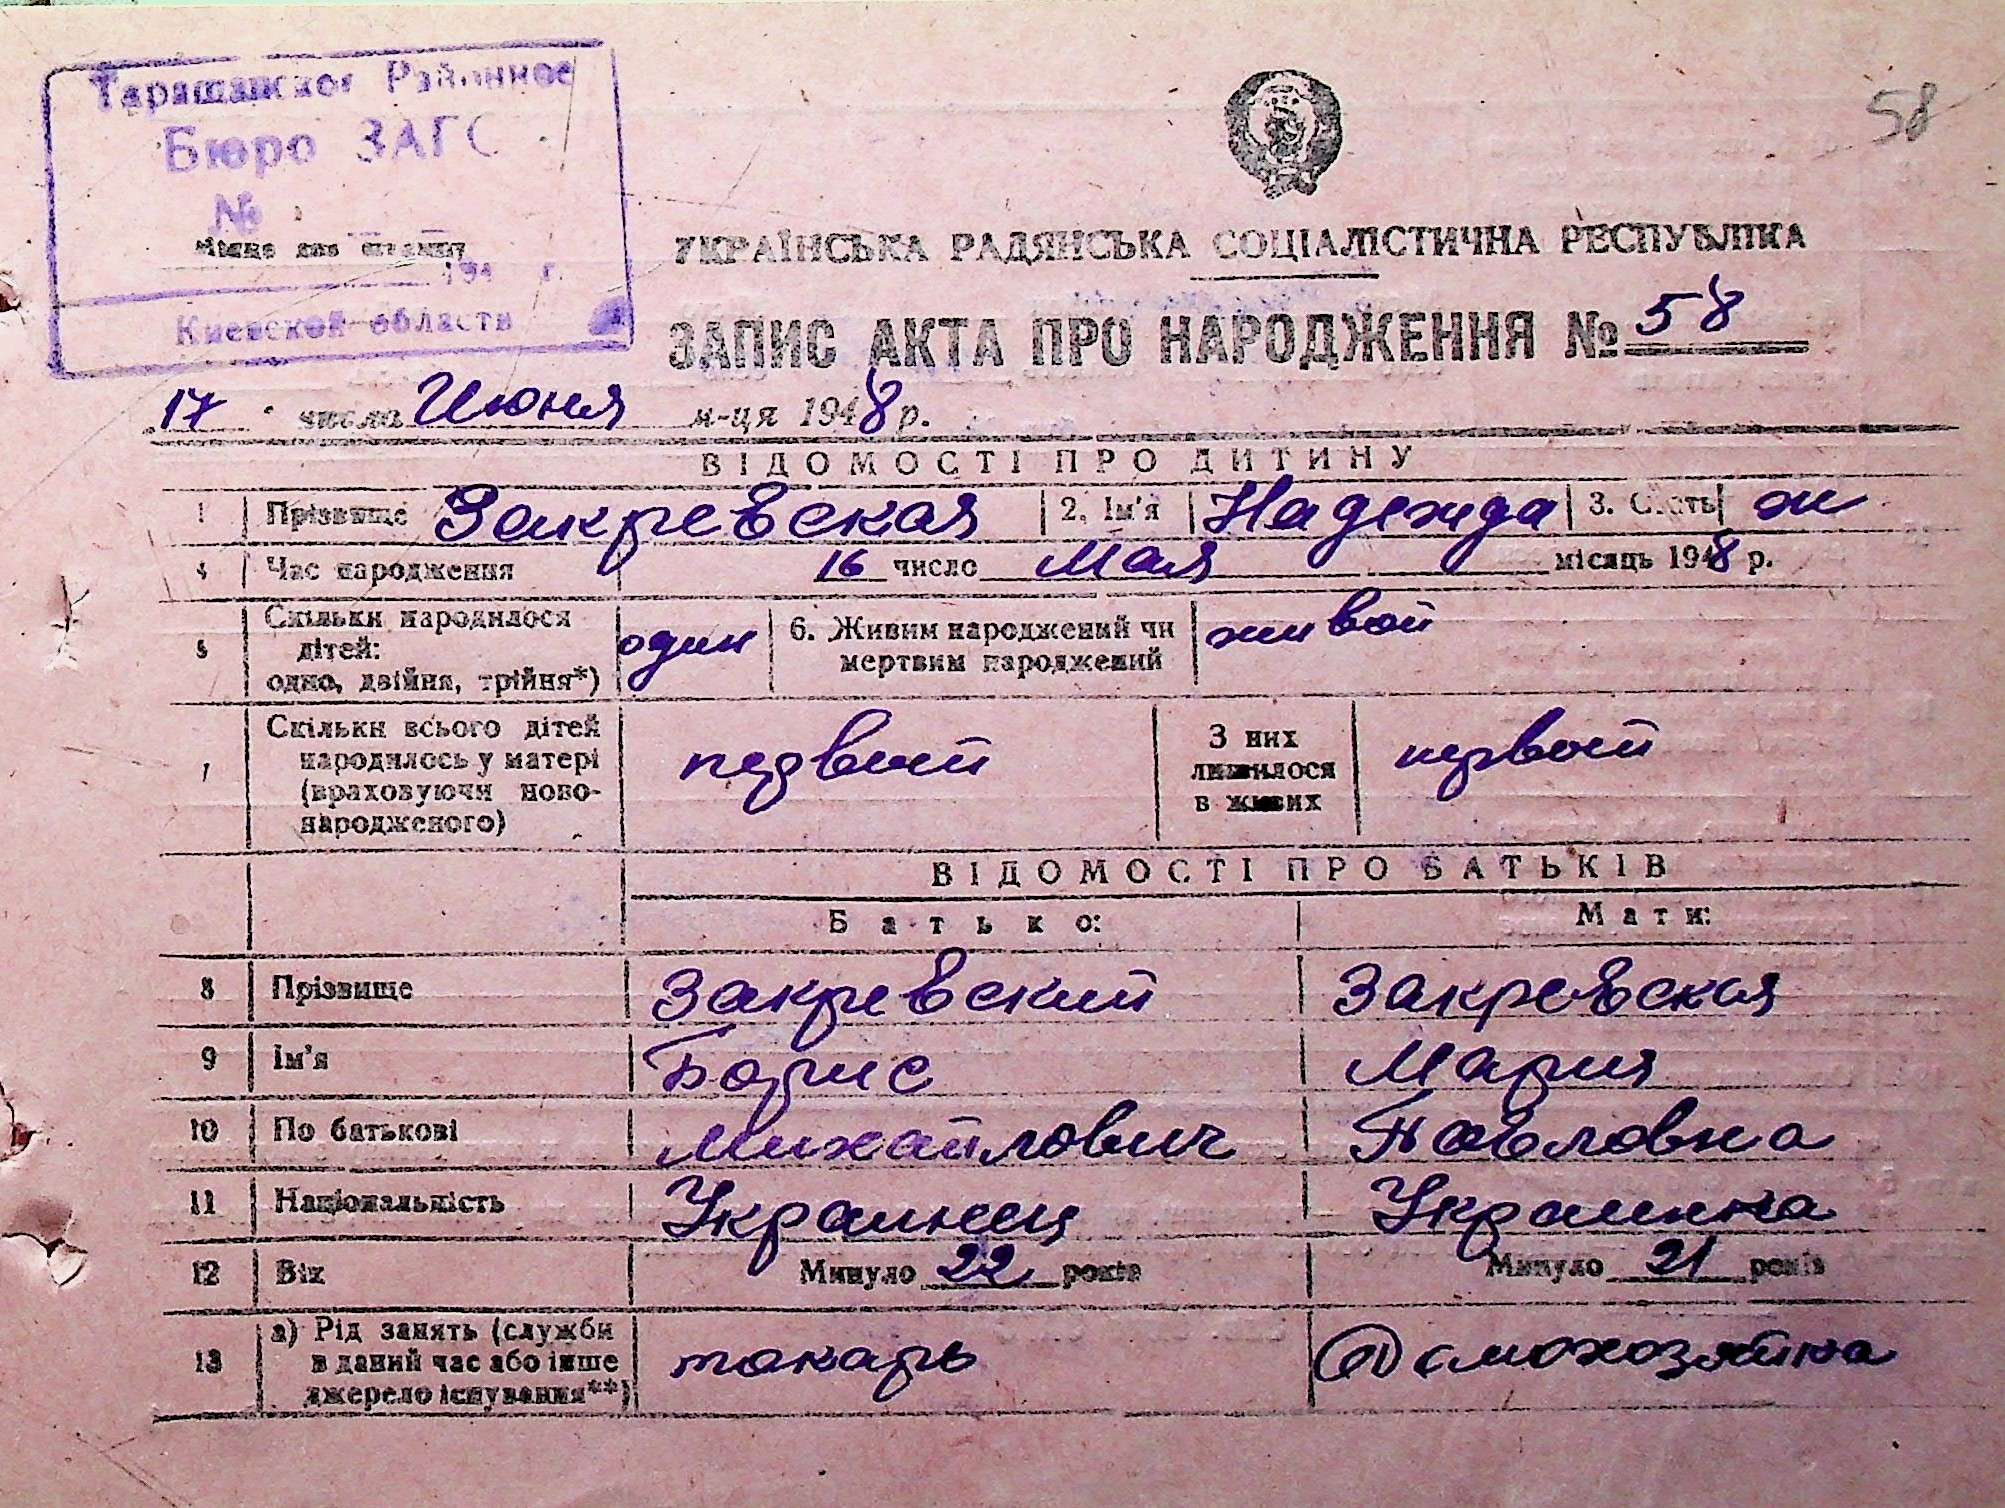 Таращанское Районное
Бюро ЗАГС
№
194 г.
Киевской области
58
УКРАЇНСЬКА РАДЯНСЬКА СОЦІАЛІСТИЧНА РЕСПУБЛІКА
ЗАПИС АКТА ПРО НАРОДЖЕННЯ № 58
17 числа Июня м-ця 1948 р.
ВІДОМОСТІ ПРО ДИТИНУ
1 Прізвище Закревская 2. Ім'я Надежда 3. Стать ж
4 Час народження 16 число Мая місяць 1948 р.
5 Скільки народилося дітей: одно, двійня, трійня*) один 6. Живим народжений чи мертвим народжений живой
7 Скільки всього дітей народилось у матері (враховуючи новонародженого) первый З них лишилося в живих первой
ВІДОМОСТІ ПРО БАТЬКІВ
Батько: Мати:
8 Прізвище Закревский Закревская
9 Ім'я Борис Мария
10 По батькові Михайлович Павловна
11 Національність Украинец Украинка
12 Вік Минуло 22 років Минуло 21 років
13 а) Рід занять (служби в даний час або інше джерело існування**) токарь Домохозяйка